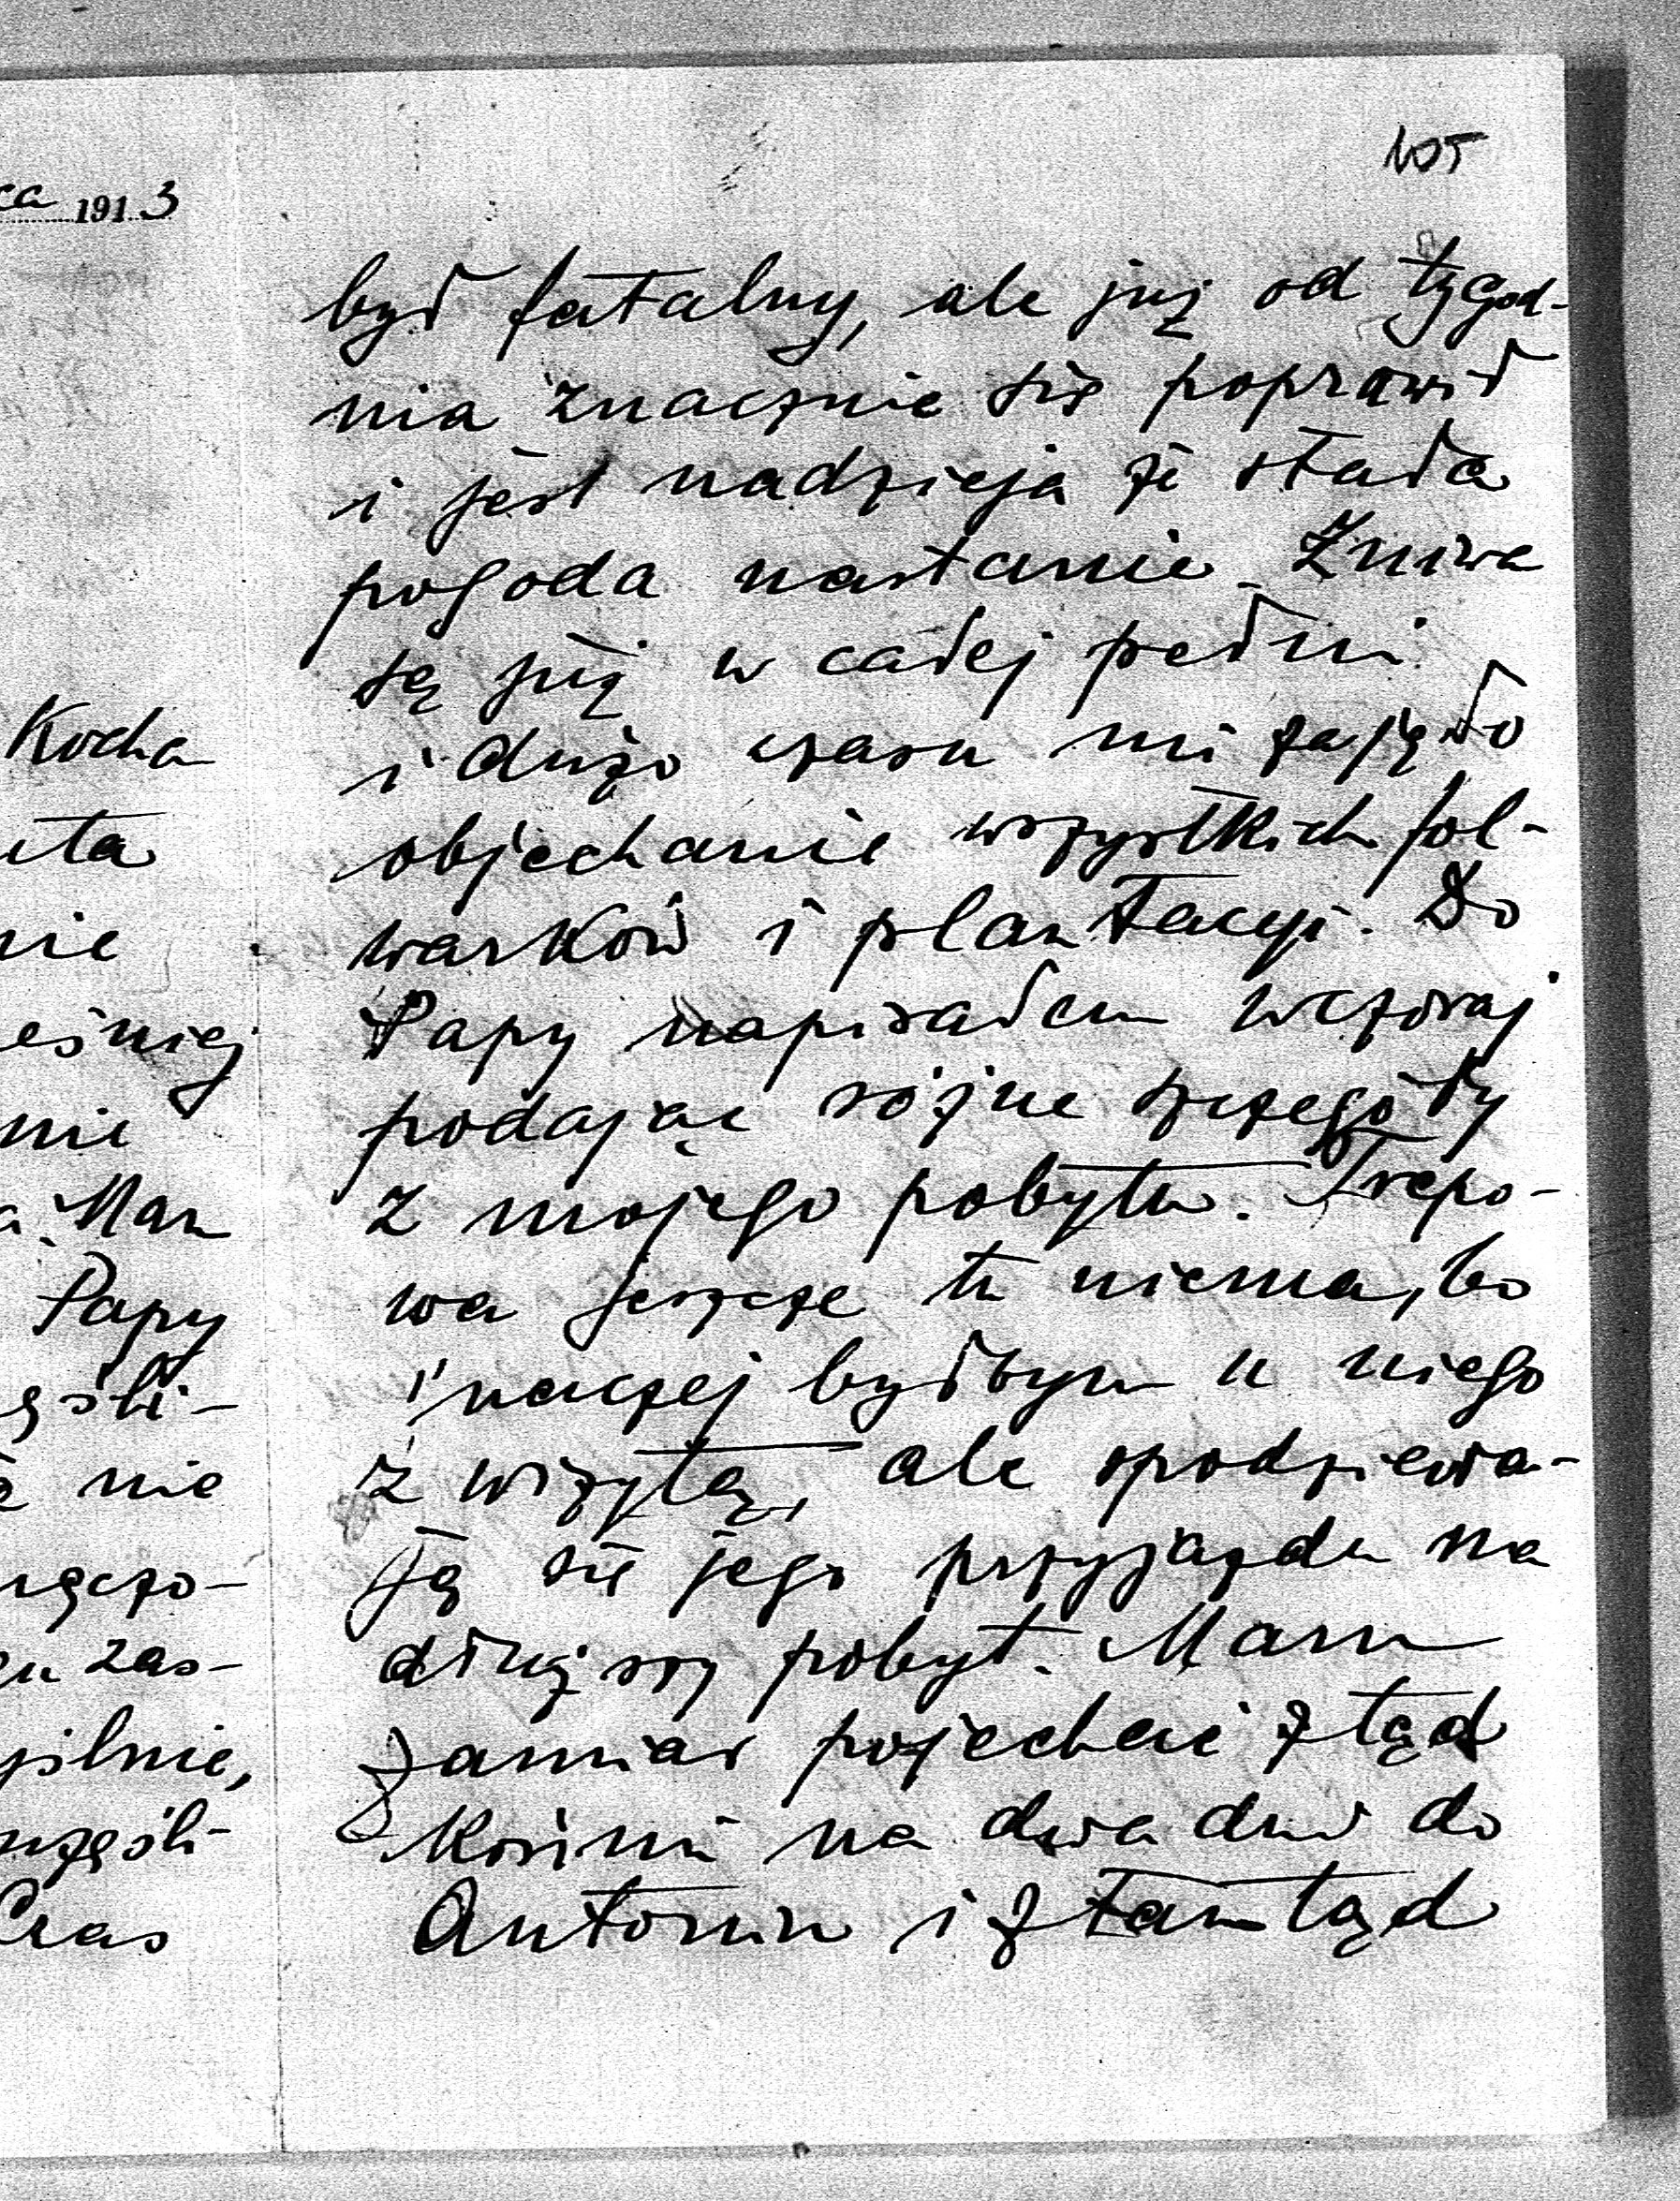 ca 1913
Kocha
uta
nie
eśniej
nie
a Mar
Papy
nie
zas-
ślnie,
Czas
105
był fatalny, ale już od tygod-
nia znacznie się poprawił
i jest nadzieja że stała
pogoda nastanie. Żniwa
są już w całej pełni
i dużo czasu mi zajęło
objechanie wszystkich fol-
warków i plantacyi. Do
Papy napisałem wczoraj
podając różne szczegóły
z mojego pobytu. Trepo-
wa jeszcze tu niema, bo
inaczej byłbym u niego
z wizytą, ale spodziewa-
ją się jego przyjazdu na
dłuższy pobyt. Mam
zamiar pojechać ztąd
końmi na dwa dni do
Antonin i z tamtąd